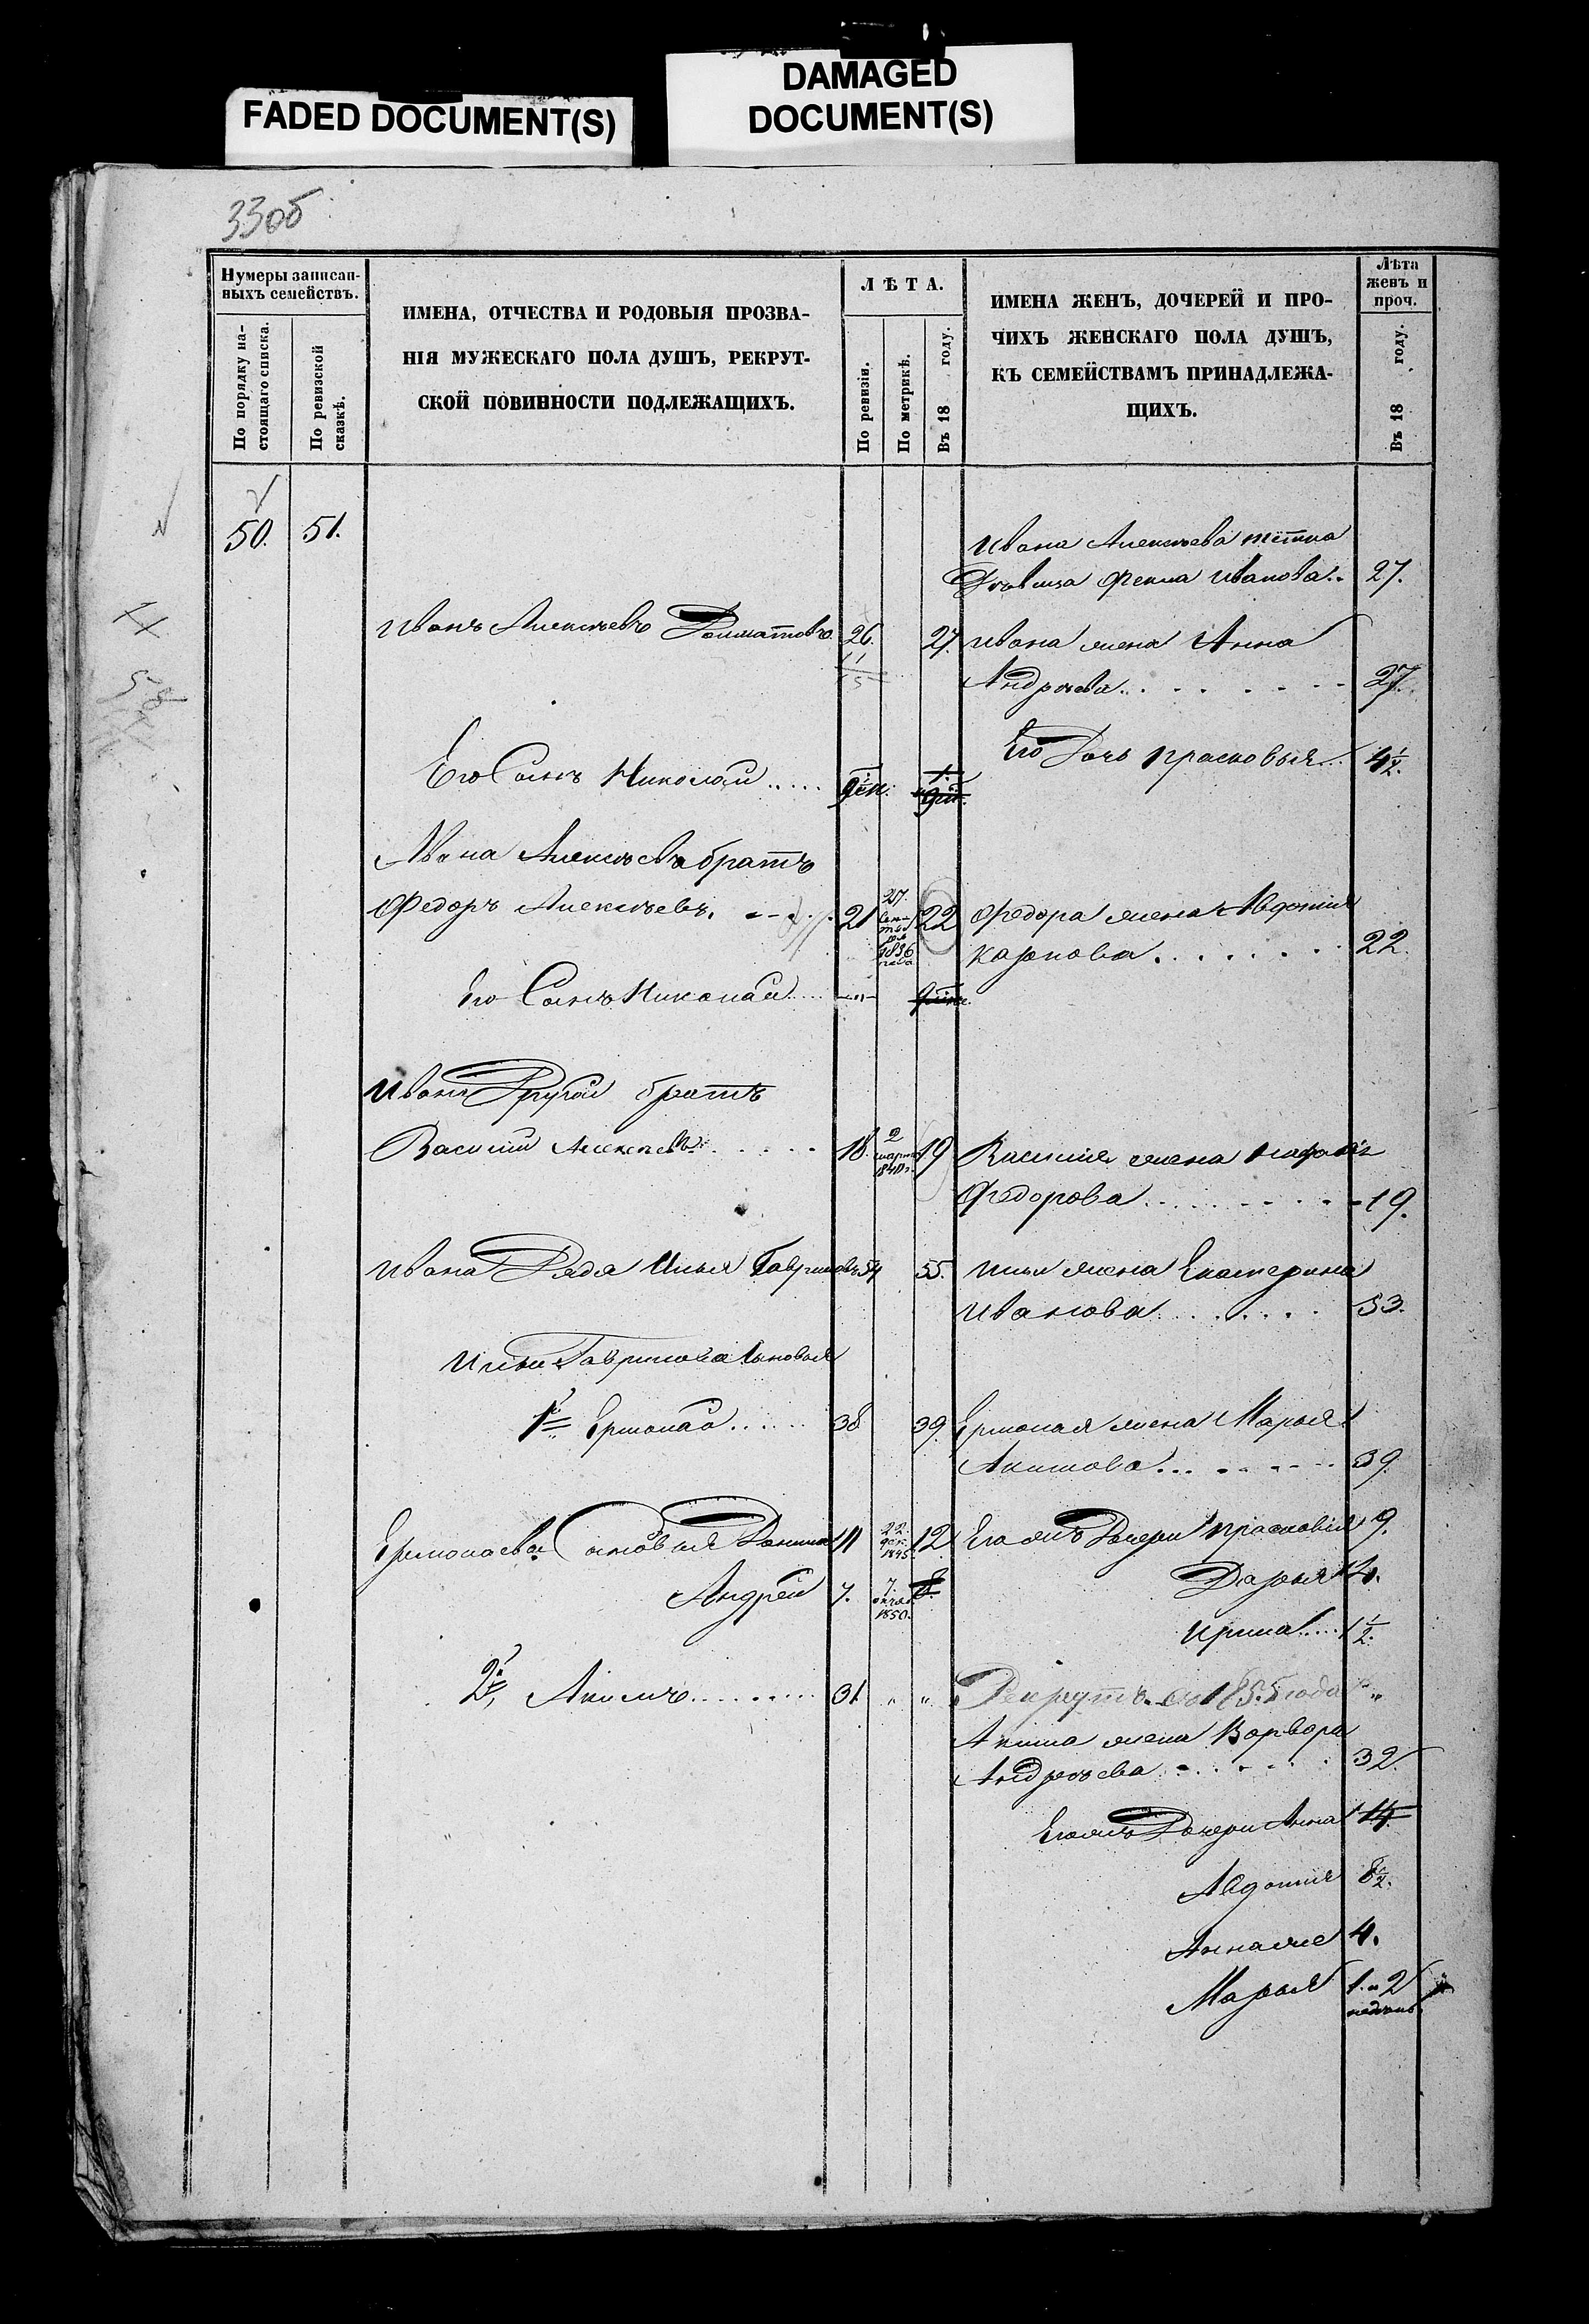 FADED DOCUMENT(S)
DAMAGED
DOCUMENT(S)
33об
Нумеры записан-
ныхъ семействъ.
По порядку на-
стоящаго списка.
По ревизской
сказкѣ.
ИМЕНА, ОТЧЕСТВА И РОДОВЫЯ ПРОЗВА-
НІЯ МУЖЕСКАГО ПОЛА ДУШЪ, РЕКРУТ-
СКОЙ ПОВИННОСТИ ПОДЛЕЖАЩИХЪ.
ЛѢТА.
По ревизіи.
По метрикѣ.
Въ 18 году.
ИМЕНА ЖЕНЪ, ДОЧЕРЕЙ И ПРО-
ЧИХЪ ЖЕНСКАГО ПОЛА ДУШЪ,
КЪ СЕМЕЙСТВАМЪ ПРИНАДЛЕЖА-
ЩИХЪ.
Лѣта
женъ и
проч.
Въ 18 году.
50. 51.
Ивана Алексѣева тётка
Дѣвица Фекла Иванова.. 27.
Иванъ Алексѣевъ 26. 27. Ивана жена Анна
Андрѣева 27.
Его Сынъ Николай Его Дочь Прасковья 4 1/2.
Ивана Алексѣева братъ
Федоръ Алексѣевъ. 21 27. Сен-
тяб
ря
1836
года 22 Федора жена Авдотья
Карпова 22.
Его Сынъ Николай
Ивана Другой братъ
Василій Алексѣевъ 18. 2
марта
1840 г. 19 Василія жена
Федорова 19.
Ивана Дядя Илья Гавриловъ 54 55. Ильи жена Екатерина
Иванова 53.
Ильи Гаврилова сыновья
1й Ермолай 38 39. Ермолая жена Марья
Акимова 39.
Ермолаева Сыновья Данила 11 22.
дек.
1845. 12 Его жъ Дочери Прасковья 9.
Андрей 7. 7.
1850. 8. Дарья 4.
Ирина 1 1/2.
2й, Акимъ 31. " " Рекрутъ съ 1855 года "
Акима жена Варвара
Андрѣева 32.
Его жъ Дочери Анна 14.
Авдотья 8 1/2.
Анна же 4.
Марья 1. 2
недѣль.